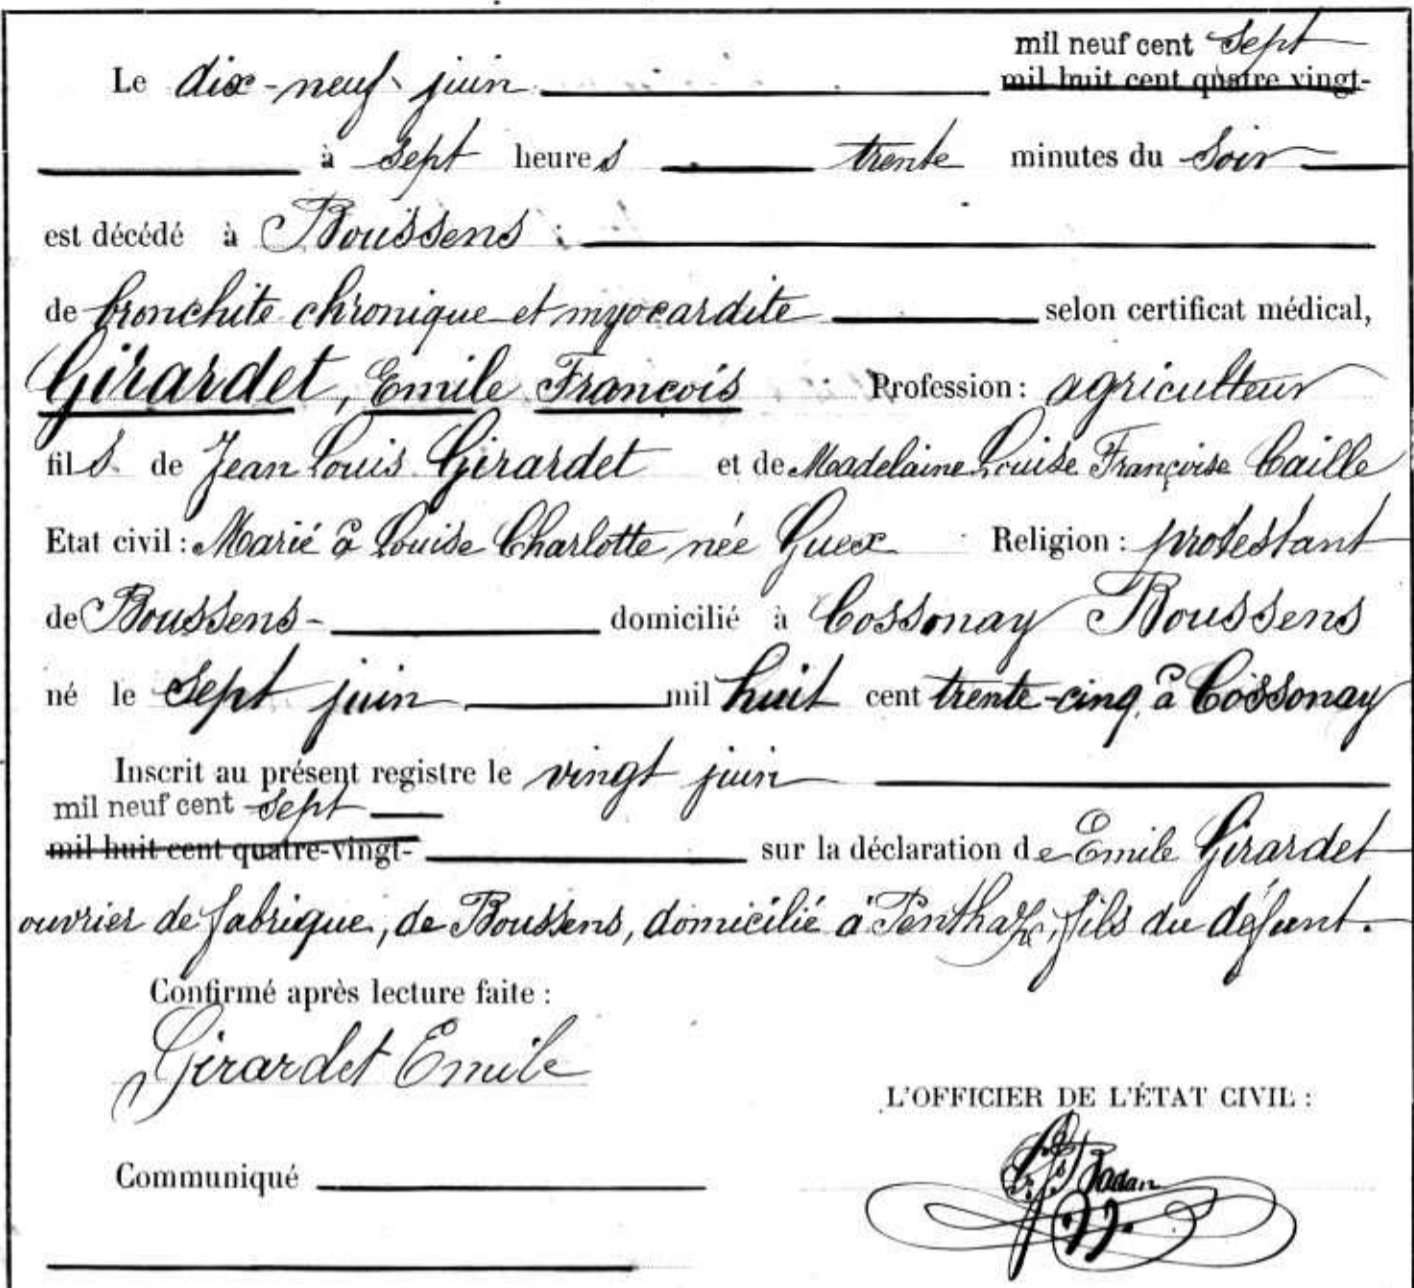 mil neuf cent Sept
Le dix-neuf juin mil huit cent quatre vingt-
à Sept heures trente minutes du Soir
est décédé à Boussens :
de bronchite chronique et myocardite selon certificat médical,
Girardet, Emile François Profession : agriculteur
fils de Jean Louis Girardet et de Madelaine Louise Françoise Caille
Etat civil : Marié à Louise Charlotte née Guex Religion : protestant
de Boussens - domicilié à Cossonay Boussens
né le Sept juin mil huit cent trente-cinq, à Cossonay
Inscrit au présent registre le vingt juin
mil neuf cent Sept
mil huit cent quatre-vingt- sur la déclaration de Emile Girardet
ouvrier de fabrique, de Boussens, domicilié à Penthaz, fils du défunt.
Confirmé après lecture faite :
Girardet Emile
L'OFFICIER DE L'ÉTAT CIVIL :
Communiqué